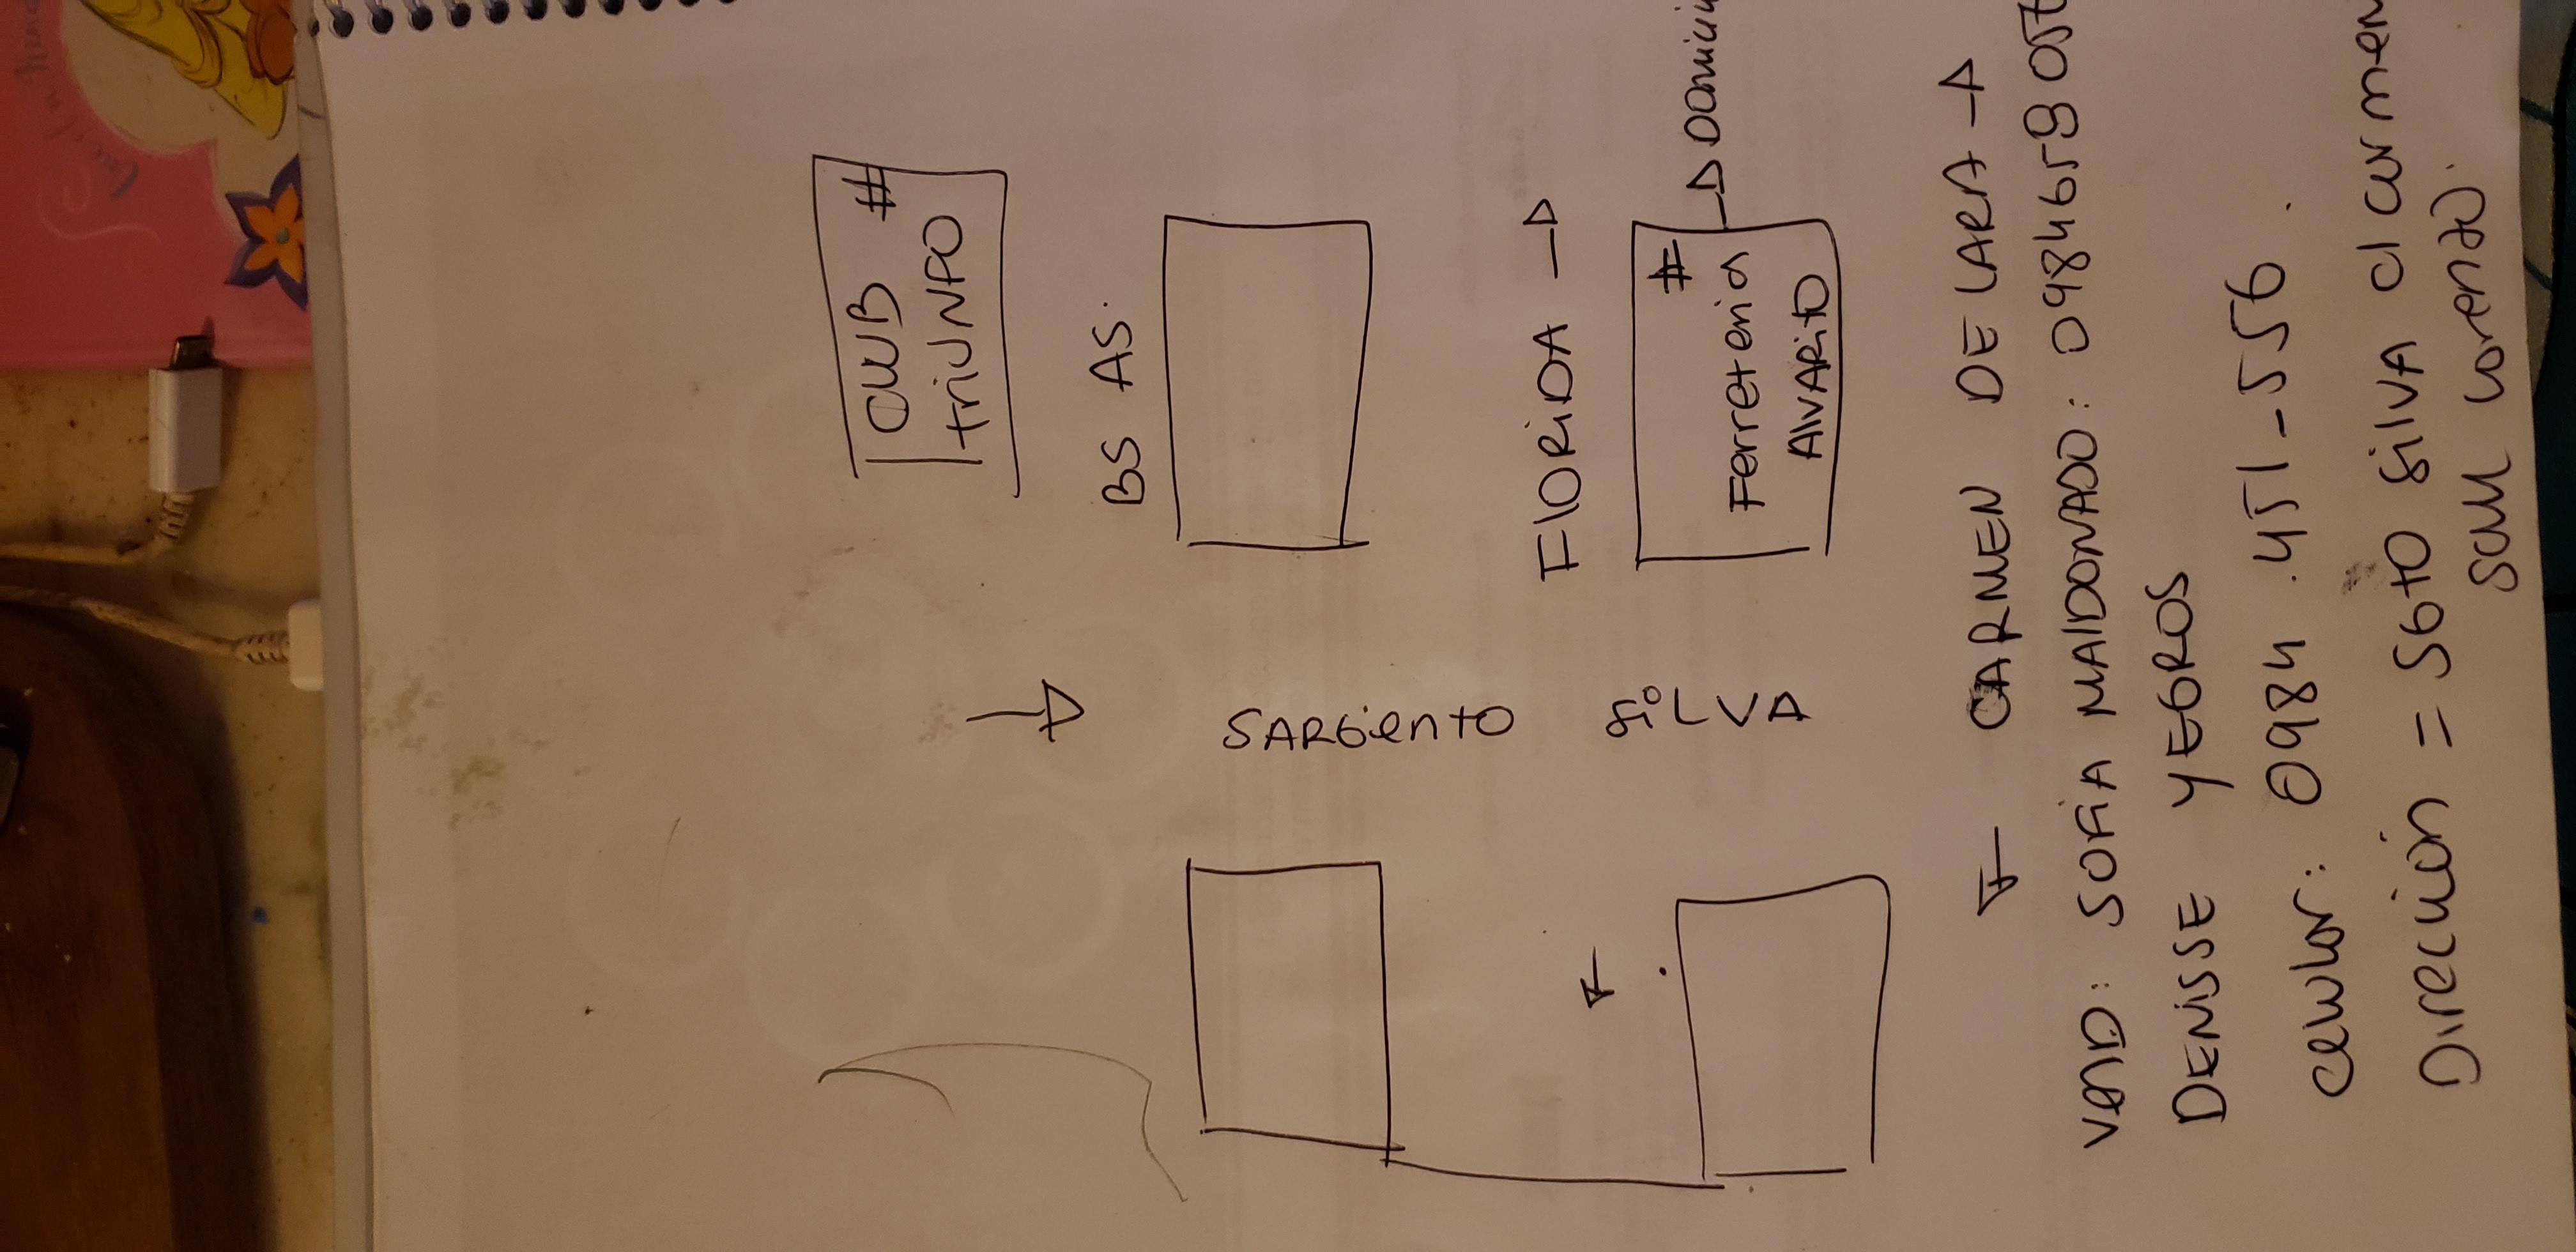 CLUB #
triUNFO
BS AS.
SARGIENTO SILVA
FLORIDA
#
Ferreteria
AlVARITO
CARMEN DE LARA
VEND: SOFIA MALDONADO:
DENISSE YEGROS
Celular: 0984.451-556.
Dirección = SGTO SILVA c/ carmen
san Lorenzo.